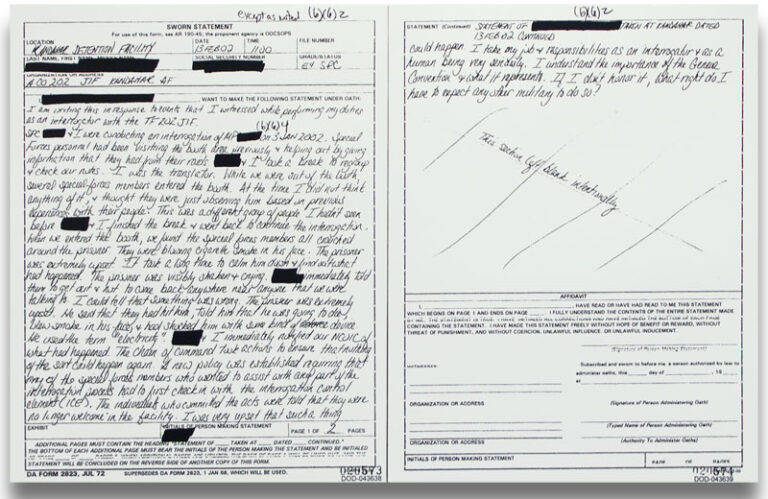 except as noted (b)(6)2
SWORN STATEMENT
For use of this form, see AR 190-45; the proponent agency is ODCSOPS
LOCATION DATE TIME FILE NUMBER
KANDAHAR DETENTION FACILITY 13 FEB 02 1100
LAST NAME, FIRST NAME, SOCIAL SECURITY NUMBER GRADE/STATUS
E4 SPC
ORGANIZATION OR ADDRESS
A CO 202 JIF KANDAHAR AF
I, , WANT TO MAKE THE FOLLOWING STATEMENT UNDER OATH:
I am writing this in response to events that I witnessed while performing my duties
as an interrogator with the TF 202 JIF.
(b)(6)4
SPC & I were conducting an interrogation of on 3 JAN 2002. Special
Forces personnel had been visiting the booth area previously & helping out by giving
information that they had from their raids & I took a break to regroup
& check our notes. I was the translator. While we were out of the booth
several special forces members entered the booth. At the time I did not think
anything of it, & thought they were just observing him based on previous
experience with their people. This was a different group of people I hadn't seen
before & I finished the break & went back to continue the interrogation.
When we entered the booth, we found the special forces members all crouched
around the prisoner. They were blowing cigarette smoke in his face. The prisoner
was extremely upset. It took a long time to calm him down & find out what
had happened. The prisoner was visibly shaken & crying. immediately told
them to get out & not to come back anywhere near anyone that we were
talking to. I could tell that something was wrong. The prisoner was extremely
upset. He said that they had hit him, told him that he was going to die,
blew smoke in his face, & had shocked him with some kind of device
He used the term "electricity" & I immediately notified our NCOIC of
what had happened. The chain of command took actions to ensure that nothing
of the sort could happen again. A new policy was established requiring that
any of the special forces members who wanted to assist with any part of the
interrogation process had to first check in with the interrogation control
element (ICE). The individuals who committed the acts were told that they were
no longer welcome in the facility. I was very upset that such a thing
EXHIBIT INITIALS OF PERSON MAKING STATEMENT PAGE 1 OF 2 PAGES
ADDITIONAL PAGES MUST CONTAIN THE HEADING "STATEMENT OF TAKEN AT DATED CONTINUED."
THE BOTTOM OF EACH ADDITIONAL PAGE MUST BEAR THE INITIALS OF THE PERSON MAKING THE STATEMENT AND BE INITIALED
STATEMENT WILL BE CONCLUDED ON THE REVERSE SIDE OF ANOTHER COPY OF THIS FORM.
DA FORM 2823, JUL 72 SUPERSEDES DA FORM 2823, 1 JAN 68, WHICH WILL BE USED. 020573
DOD-043638
(b)(6)2
STATEMENT (Continued) STATEMENT OF TAKEN AT KANDAHAR DATED
13 FEB 02 CONTINUED
could happen. I take my job & responsibilities as an interrogator & as a
human being very seriously. I understand the importance of the Geneva
Convention & what it represents. If I don't honor it, what right do I
have to expect any other military to do so?
This section left blank intentionally
AFFIDAVIT
I, , HAVE READ OR HAVE HAD READ TO ME THIS STATEMENT
WHICH BEGINS ON PAGE 1 AND ENDS ON PAGE . I FULLY UNDERSTAND THE CONTENTS OF THE ENTIRE STATEMENT MADE
CONTAINING THE STATEMENT. I HAVE MADE THIS STATEMENT FREELY WITHOUT HOPE OF BENEFIT OR REWARD, WITHOUT
THREAT OF PUNISHMENT, AND WITHOUT COERCION, UNLAWFUL INFLUENCE, OR UNLAWFUL INDUCEMENT.
(Signature of Person Making Statement)
WITNESSES: Subscribed and sworn to before me, a person authorized by law to
administer oaths, this day of , 19
at
ORGANIZATION OR ADDRESS (Signature of Person Administering Oath)
(Typed Name of Person Administering Oath)
ORGANIZATION OR ADDRESS (Authority To Administer Oaths)
INITIALS OF PERSON MAKING STATEMENT PAGE OF PAGES
020574
DOD-043639